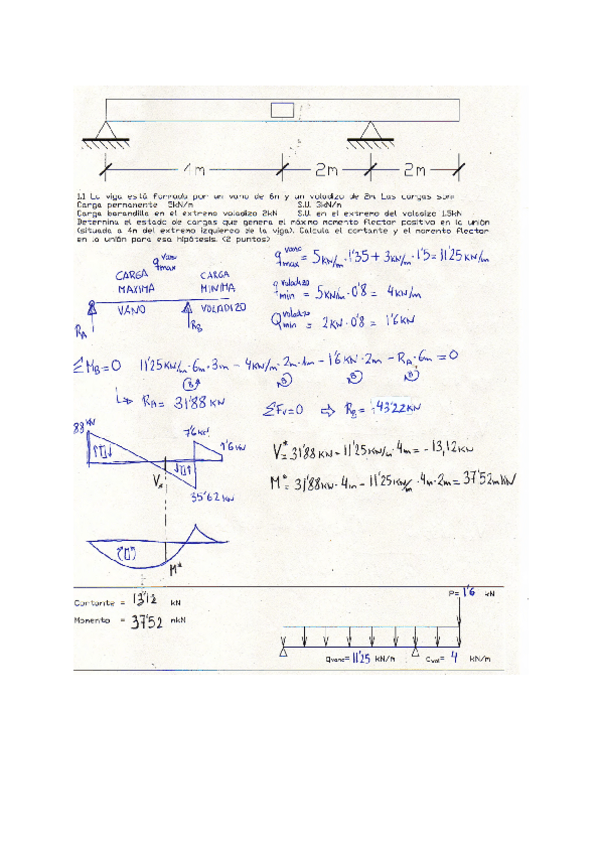 4m 2m 2m
1.1 La viga está formada por un vano de 6m y un voladizo de 2m. Las cargas son:
Carga permanente 5kN/m S.U. 3kN/m
Carga barandilla en el extremo voladizo 2kN S.U. en el extremo del voladizo 1.5kN
Determina el estado de cargas que genera el máximo momento flector positivo en la unión
(situada a 4m del extremo izquierdo de la viga). Calcula el cortante y el momento flector
en la unión para esa hipótesis. (2 puntos)
q max vano = 5 kN/m · 1'35 + 3 kN/m · 1'5 = 11'25 kN/m
q max vano
CARGA MAXIMA VANO
CARGA MINIMA VOLADIZO
q min voladizo = 5 kN/m · 0'8 = 4 kN/m
Q min voladizo = 2 kN · 0'8 = 1'6 kN
RA RB
ΣMB=0 11'25 kN/m · 6m · 3m − 4 kN/m · 2m · 1m − 1'6 kN · 2m − RA · 6m = 0
B B B
↳ RA = 31'88 kN
ΣFv=0 ⇒ RB = 43'22 kN
kN
7'6 kN
1'6 kN
V*
35'62 kN
V* = 31'88 kN − 11'25 kN/m · 4m = − 13,12 kN
M* = 31'88 kN · 4m − 11'25 kN/m · 4m · 2m = 37'52 m kN
M*
Cortante = 13'12 kN
Momento = 37'52 mkN
P= 1'6 kN
qvano= 11'25 kN/m qvol= 4 kN/m